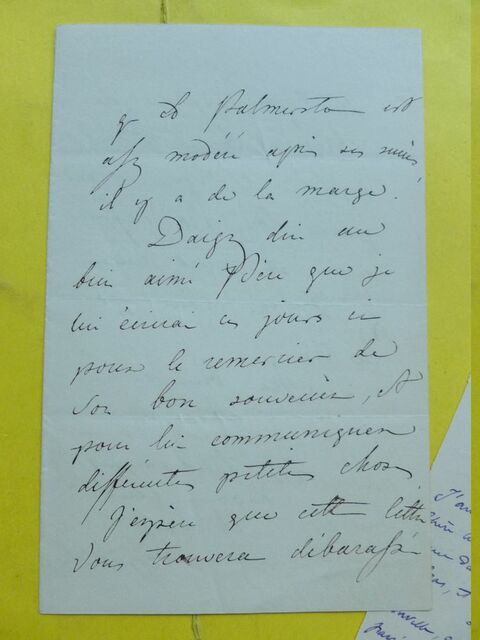 q Ld Palmerston est
assez modéré après ses
il y a de la marge.
Daignez dire au
bien aimé Père que je
lui écrirai ces jours ci
pour le remercier de
son bon souvenir, et
pour lui communiquer
différentes petites choses
J'espère que cette lettre
vous trouvera débarassé